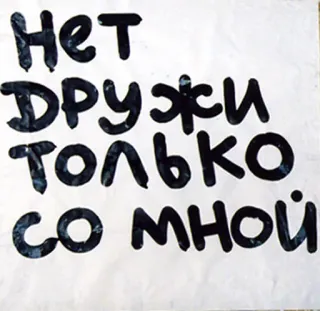 Нет
дружи
только
со мной